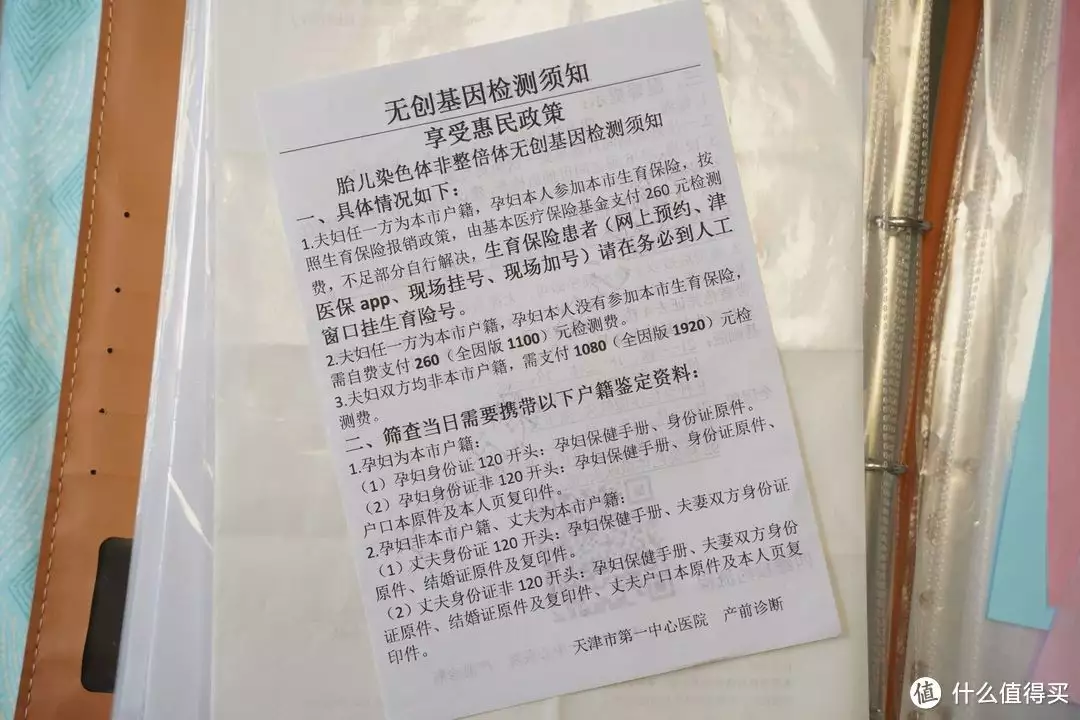 无创基因检测须知
享受惠民政策
胎儿染色体非整倍体无创基因检测须知
一、具体情况如下：
1.夫妇任一方为本市户籍，孕妇本人参加本市生育保险，按
照生育保险报销政策，由基本医疗保险基金支付 260 元检测
费，不足部分自行解决，生育保险患者（网上预约、津
医保 app、现场挂号、现场加号）请在务必到人工
窗口挂生育险号。
2.夫妇任一方为本市户籍，孕妇本人没有参加本市生育保险，
需自费支付 260（全因版 1100）元检测费。
3.夫妇双方均非本市户籍，需支付 1080（全因版 1920）元检
测费。
二、筛查当日需要携带以下户籍鉴定资料：
1.孕妇为本市户籍：
（1）孕妇身份证 120 开头：孕妇保健手册、身份证原件。
（2）孕妇身份证非 120 开头：孕妇保健手册、身份证原件、
户口本原件及本人页复印件。
2.孕妇非本市户籍、丈夫为本市户籍：
（1）丈夫身份证 120 开头：孕妇保健手册、夫妻双方身份证
原件、结婚证原件及复印件。
（2）丈夫身份证非 120 开头：孕妇保健手册、夫妻双方身份
证原件、结婚证原件及复印件、丈夫户口本原件及本人页复
印件。
天津市第一中心医院 产前诊断
值 什么值得买